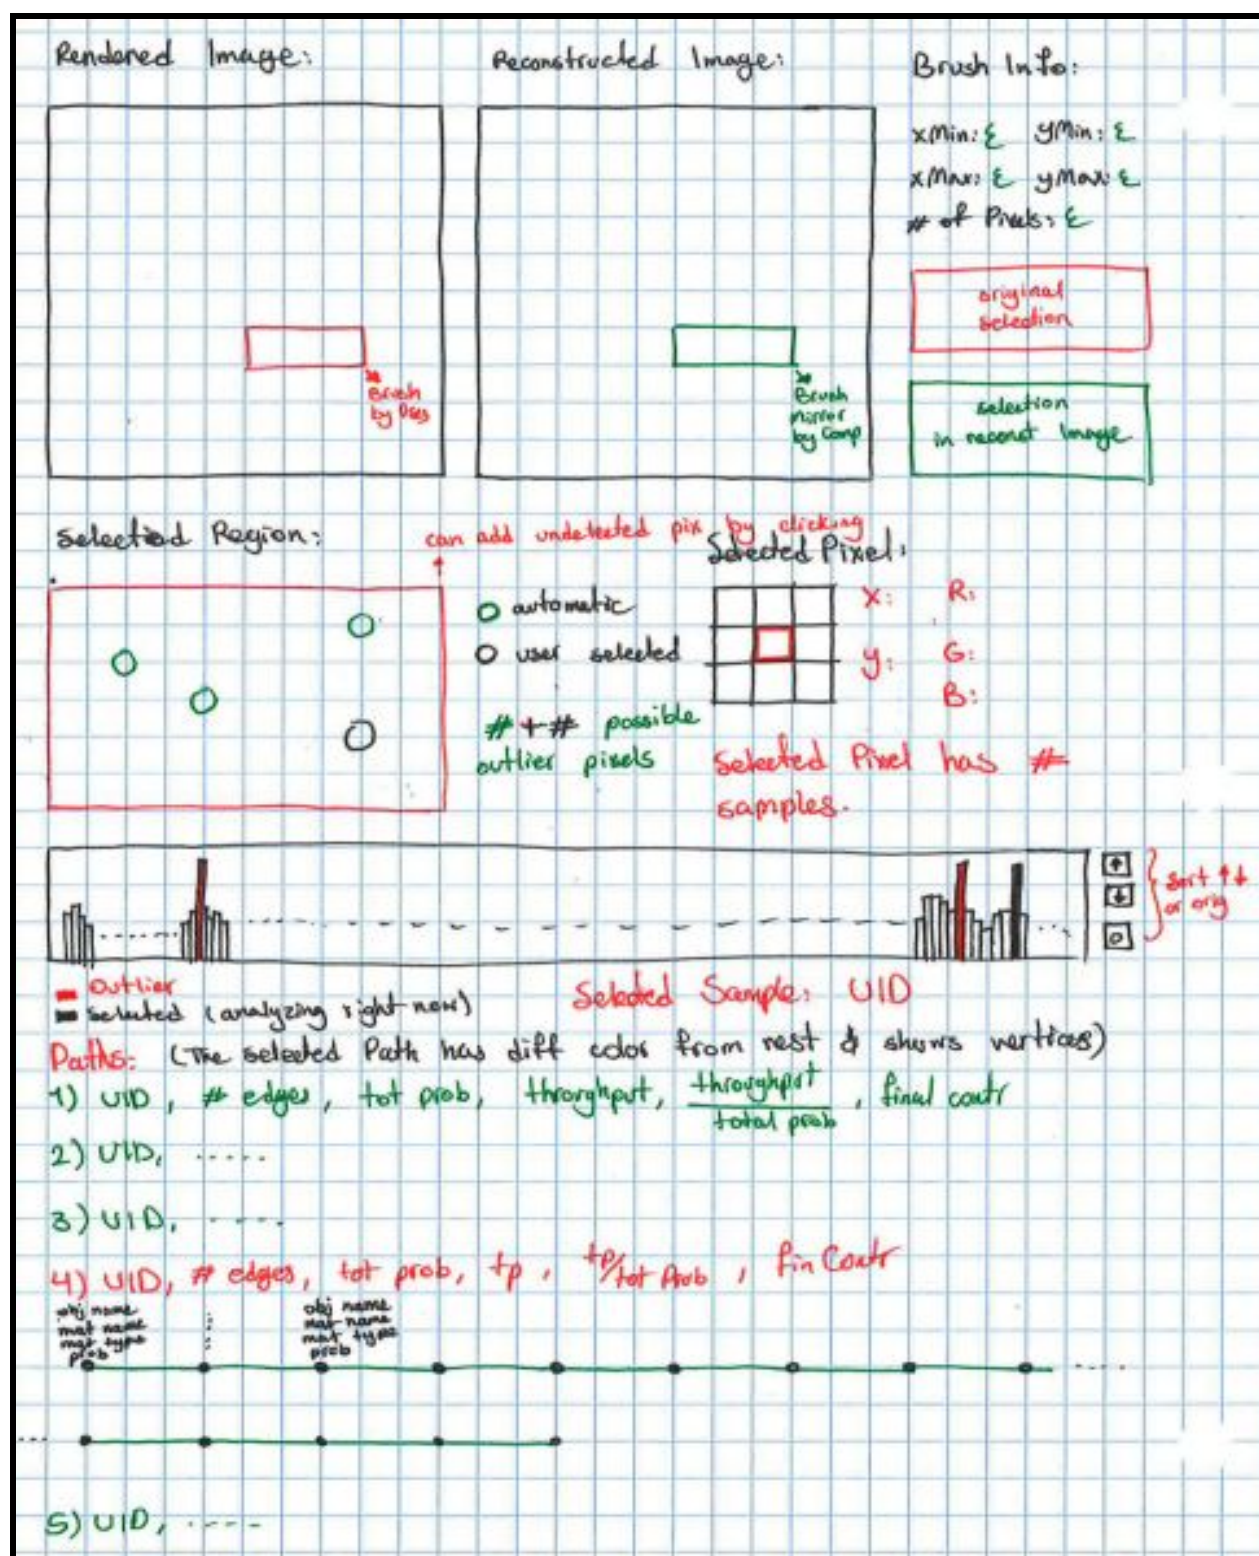 Rendered Image:
Reconstructed Image:
Brush Info:
xMin: ξ yMin: ξ
xMax: ξ yMax: ξ
# of Pixels: ξ
original
selection
selection
in reconst Image
Brush
by User
Brush
mirror
by Comp
Selected Region:
can add undetected pix by clicking
Selected Pixel:
automatic
user selected
# + # possible
outlier pixels
X: R:
y: G:
B:
Selected Pixel has #
samples.
sort ↑↓
or orig
Outlier
selected (analyzing right now)
Selected Sample: UID
Paths: (The selected Path has diff color from rest & shows vertices)
1) UID, # edges, tot prob, throughput, throughput / total prob, final contr
2) UID, .....
3) UID, .....
4) UID, # edges, tot prob, tp, tp/tot Prob, fin Contr
obj name
mat name
mat type
prob
obj name
mat name
mat type
prob
5) UID, -----